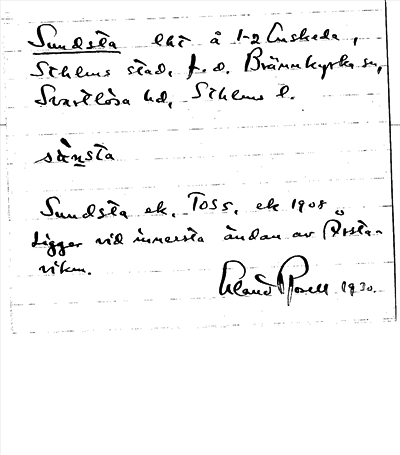 Sundsta lht å 1-2 Enskeda,
Sthlms stad, f.d. Brännkyrka sn,
Svartlösa hd, Sthlms l.
sùnsta
Sundsta ek. TOSS, ek 1908
Ligger vid innersta ändan av Årsta-
viken.
1930.